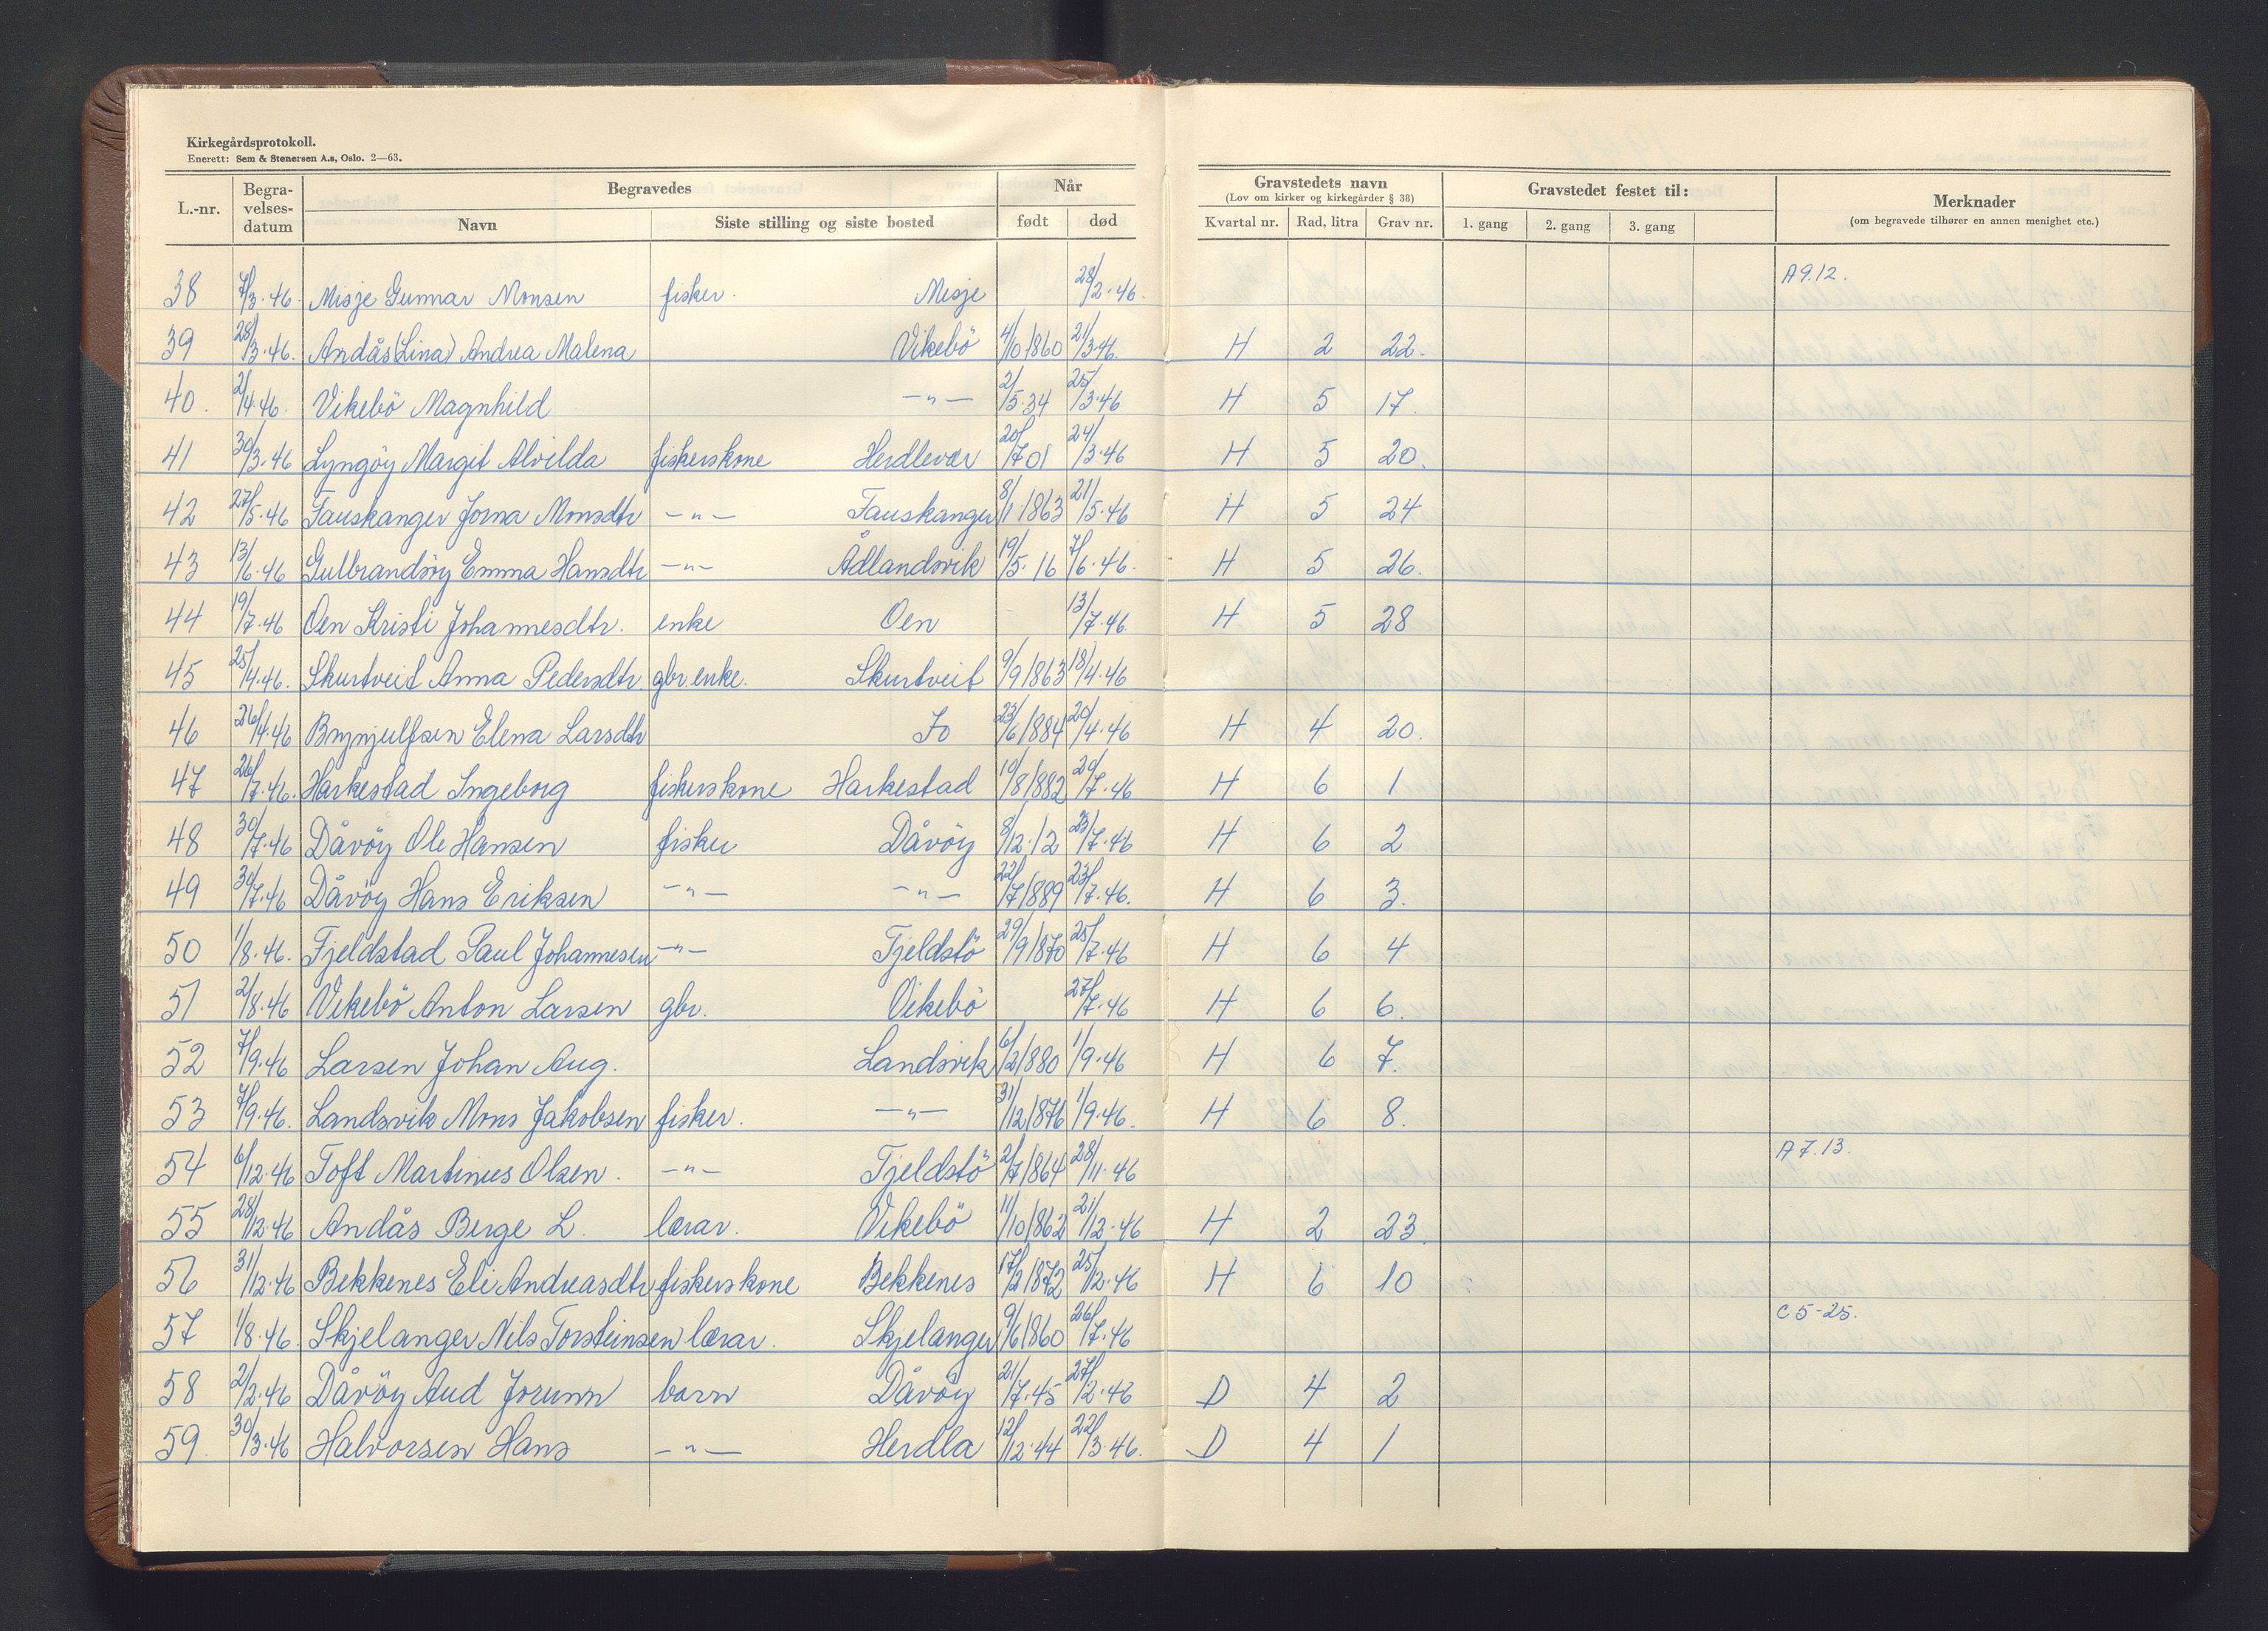 Kirkegårdsprotokoll.
Enerett: Sem & Stenersen A.s, Oslo. 2—63.
L.-nr. Begra-velses-datum Begravedes Når Gravstedets navn Gravstedet festet til: Merknader
(Lov om kirker og kirkegårder § 38) (om begravede tilhører en annen menighet etc.)
Navn Siste stilling og siste bosted født død Kvartal nr. Rad, litra Grav nr. 1. gang 2. gang 3. gang
38 7/3.46. Misje Gunnar Monsen fisker. Misje 28/2.46. A 9.12.
39 28/3.46. Andås (Lina) Andrea Malena Vikebö 4/10 1860 21/3.46. H 2 22.
40. 2/4.46. Vikebö Magnhild —"— 2/5.34 25/3.46 H 5 17.
41 30/3.46 Lyngöy Margit Alvilda fiskerskone Herdlevær 20/7 01 24/3.46 H 5 20.
42 27/5.46 Fauskanger Jorna Monsdtr —"— Fauskanger 8/1 1863 21/5.46 H 5 24
43 13/6.46 Gulbrandsöy Emma Hansdtr —"— Ådlandsvik 19/5.16 7/6.46. H 5 26.
44 19/7.46 Oen Kristi Johannesdtr. enke Oen 13/7.46. H 5 28
45 25/4.46. Skurtveit Anna Pedersdtr. gbr. enke. Skurtveit 9/9 1863 18/4.46
46 26/4.46 Brynjulfsen Elena Larsdtr Jo 23/6 1884 20/4.46 H 4 20.
47 26/7.46. Harkestad Ingeborg fiskerskone Harkestad 10/8 1882 20/7.46 H 6 1
48 30/7.46 Dåvöy Ole Hansen fisker Dåvöy 8/12.12 23/7.46 H 6 2
49 30/7.46 Dåvöy Hans Eriksen —"— —"— 22/7 1889 23/7.46. H 6 3.
50 1/8.46. Fjeldstad Paul Johannesen —"— Tjeldstö 29/9 1870 25/7.46 H 6 4
51 2/8.46 Vikebö Anton Larsen gbr. Vikebö 27/7.46 H 6 6.
52 7/9.46 Larsen Johan Aug. Landsvik 6/2 1880 1/9.46 H 6 7.
53 7/9.46. Landsvik Mons Jakobsen fisker. —"— 31/12 1876 1/9.46. H 6 8.
54 6/12.46 Toft Martinus Olsen. —"— Tjeldstö 2/7 1864 28/11.46 A 7.13.
55 28/12.46 Andås Berge L. lærar. Vikebö 11/10 1862 21/12.46 H 2 23.
56 31/12.46 Bekkenes Eli Andreasdtr fiskerskone Bekkenes 17/2 1872 25/12.46 H 6 10
57 1/8.46. Skjelanger Nils Torsteinsen lærar. Skjelanger 9/6 1860 26/7.46 C 5-25.
58 2/3.46 Dåvöy Aud Jorunn barn Dåvöy 21/7.45 27/2.46 D 4 2
59. 30/3.46 Halvorsen Hans —"— Herdla 12/12.44 22/3.46. D 4 1